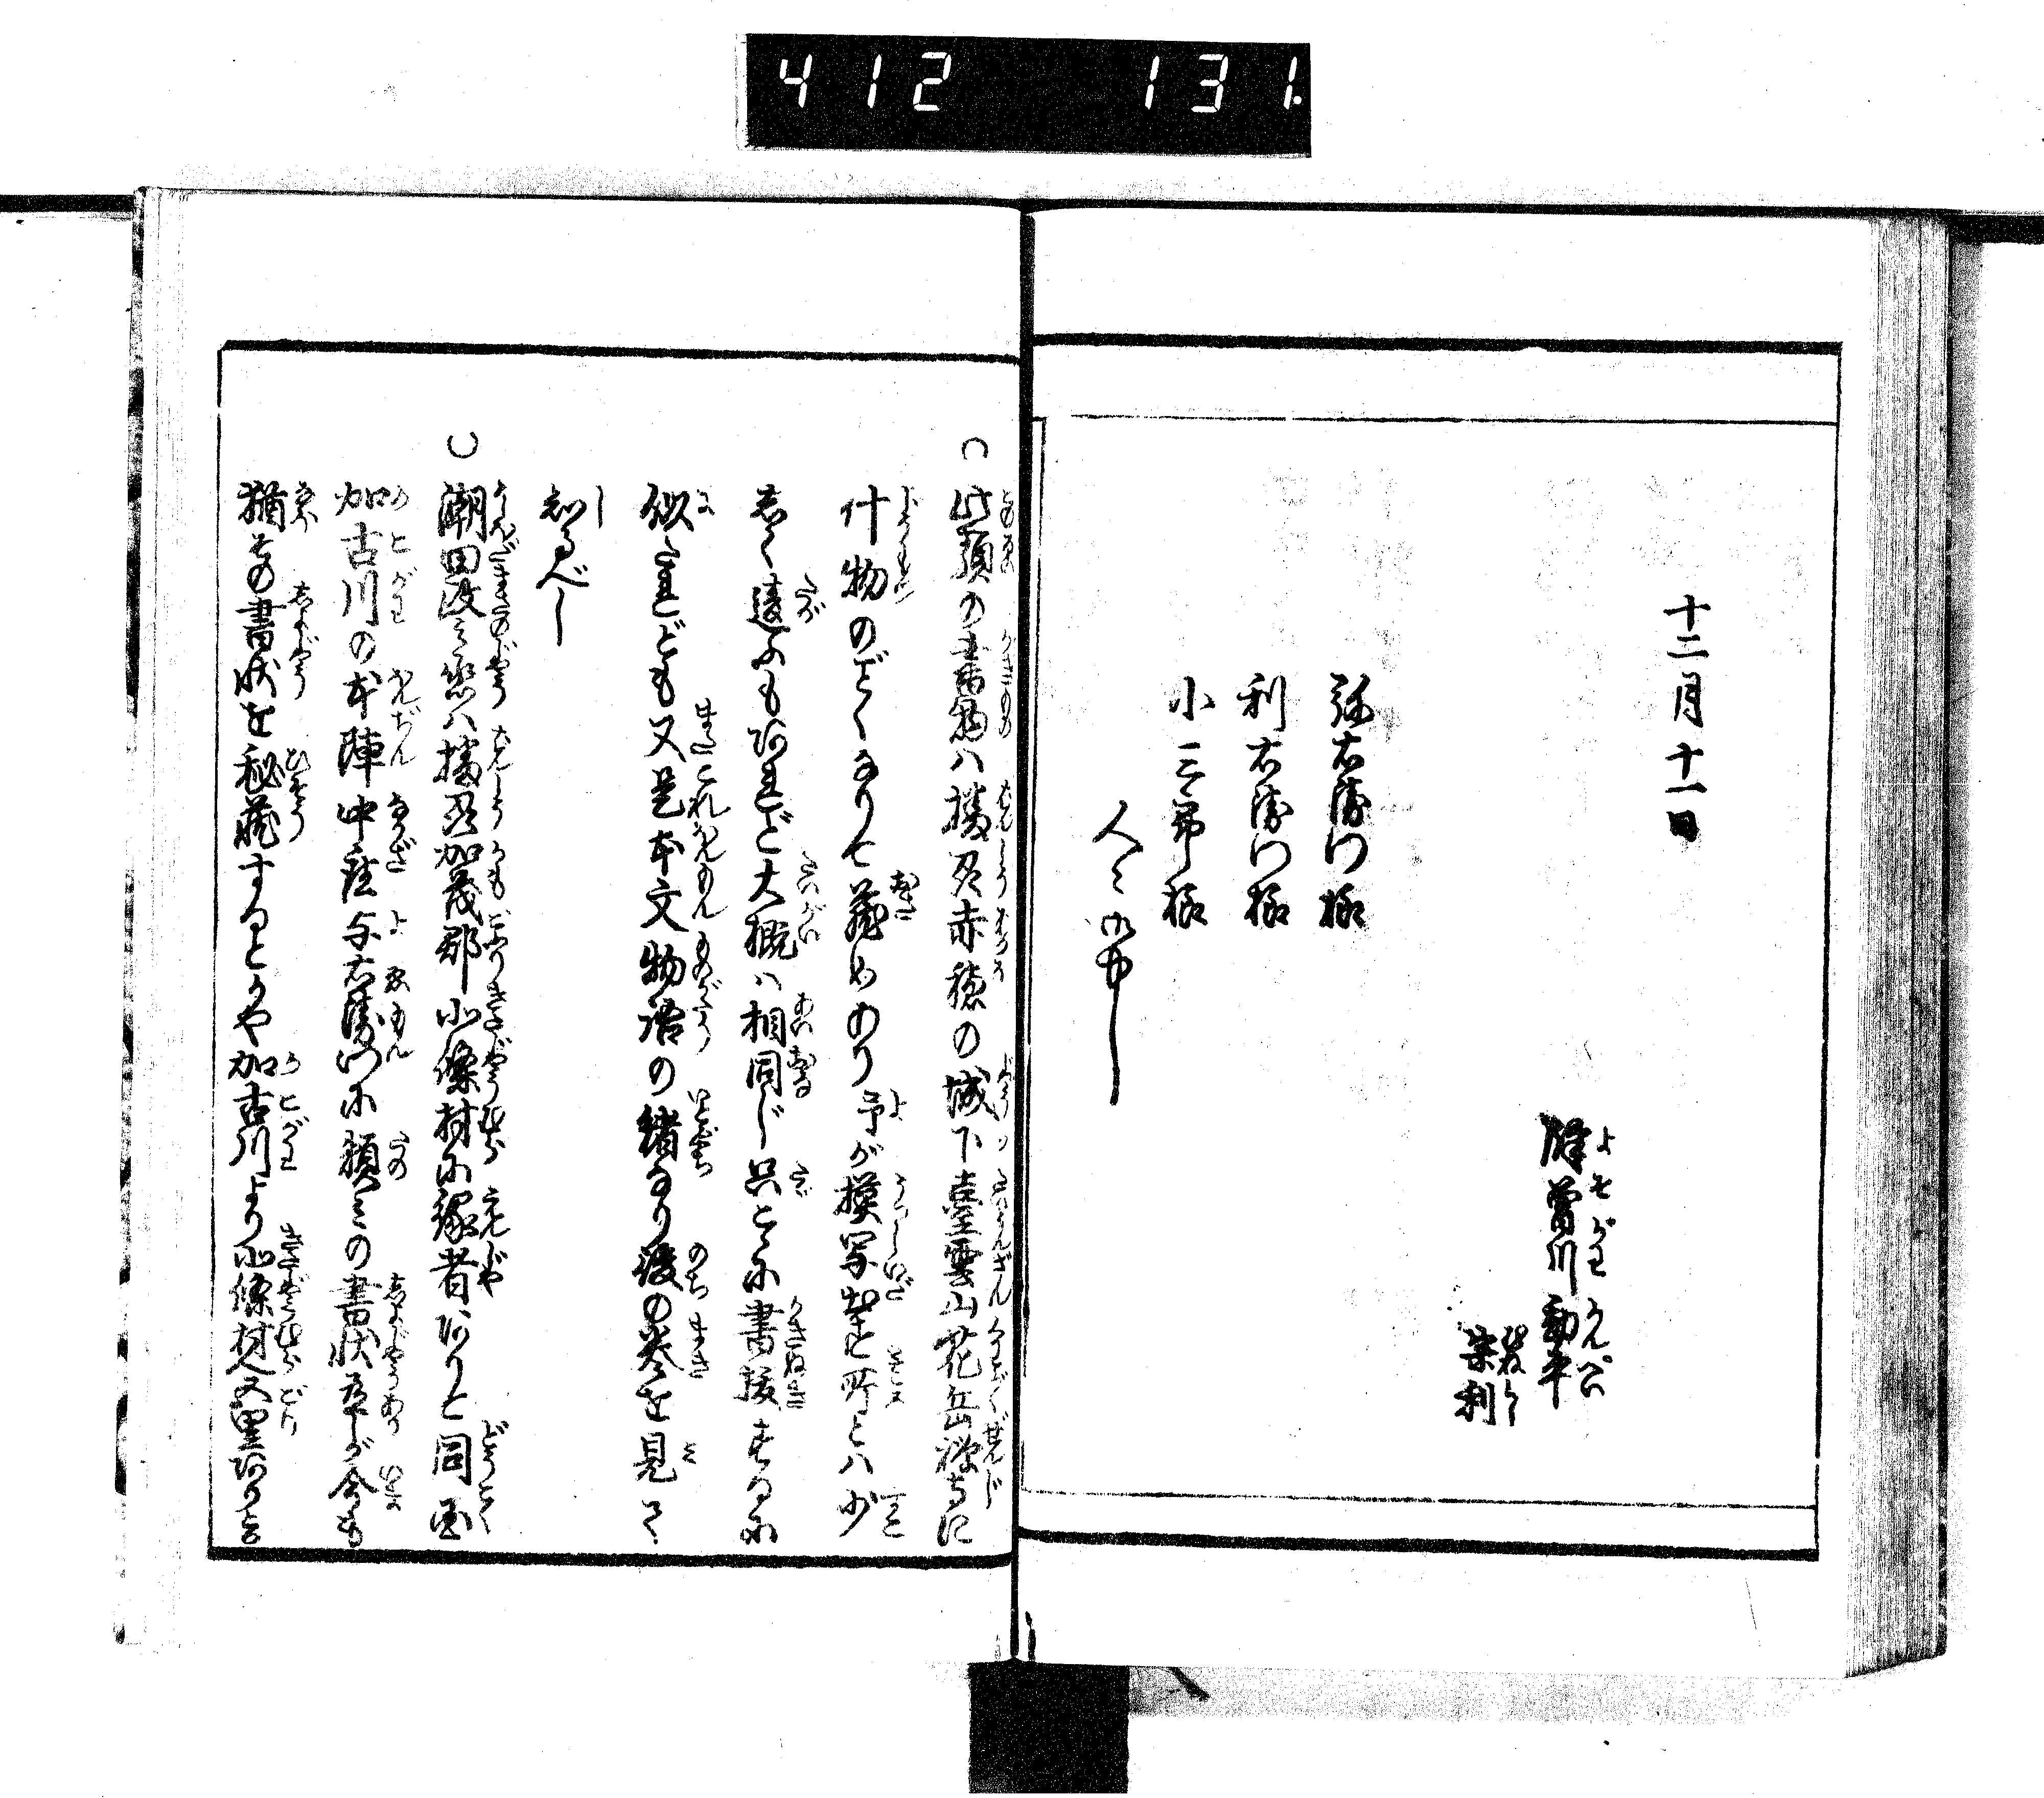 412 131.
十二月十一日
曽川勘平
弥右衛門様
利右衛門様
小三郎様
人々御中
此類の書物ハ播州赤穂の城下臺雲山花岳禅寺に
什物のごとくなりて蔵めあり予が模写せし所とハ少
しく違ふもあれど大概ハ相同じ只こゝに書接するに
似たれども又是本文物語の緒なり後の巻を見て
知るべし
潮田又之丞ハ播州加茂郡北條村に縁者ありと同国
加古川の本陣中座与右衛門に頼みの書状ありしが今も
猶其書状を秘蔵するとかや加古川より北條村へ五里ありと云